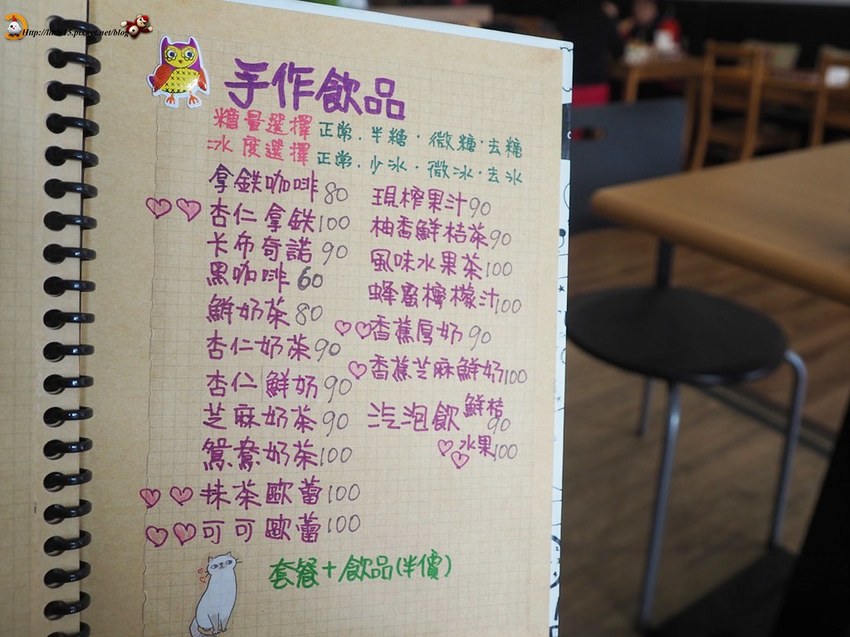 Http://lin315.pixnet.net/blog
手作飲品
糖量選擇 正常.半糖.微糖.去糖
冰度選擇 正常.少冰.微冰.去冰
拿鉄咖啡80
杏仁拿鉄100
卡布奇諾90
黑咖啡60
鮮奶茶80
杏仁奶茶90
杏仁鮮奶90
芝麻奶茶90
鴛鴦奶茶100
抹茶歐蕾100
可可歐蕾100
現榨果汁90
柚香鮮桔茶90
風味水果茶100
蜂蜜檸檬汁100
香蕉厚奶90
香蕉芝麻鮮奶100
汽泡飲 鮮桔90
水果100
套餐+飲品(半價)